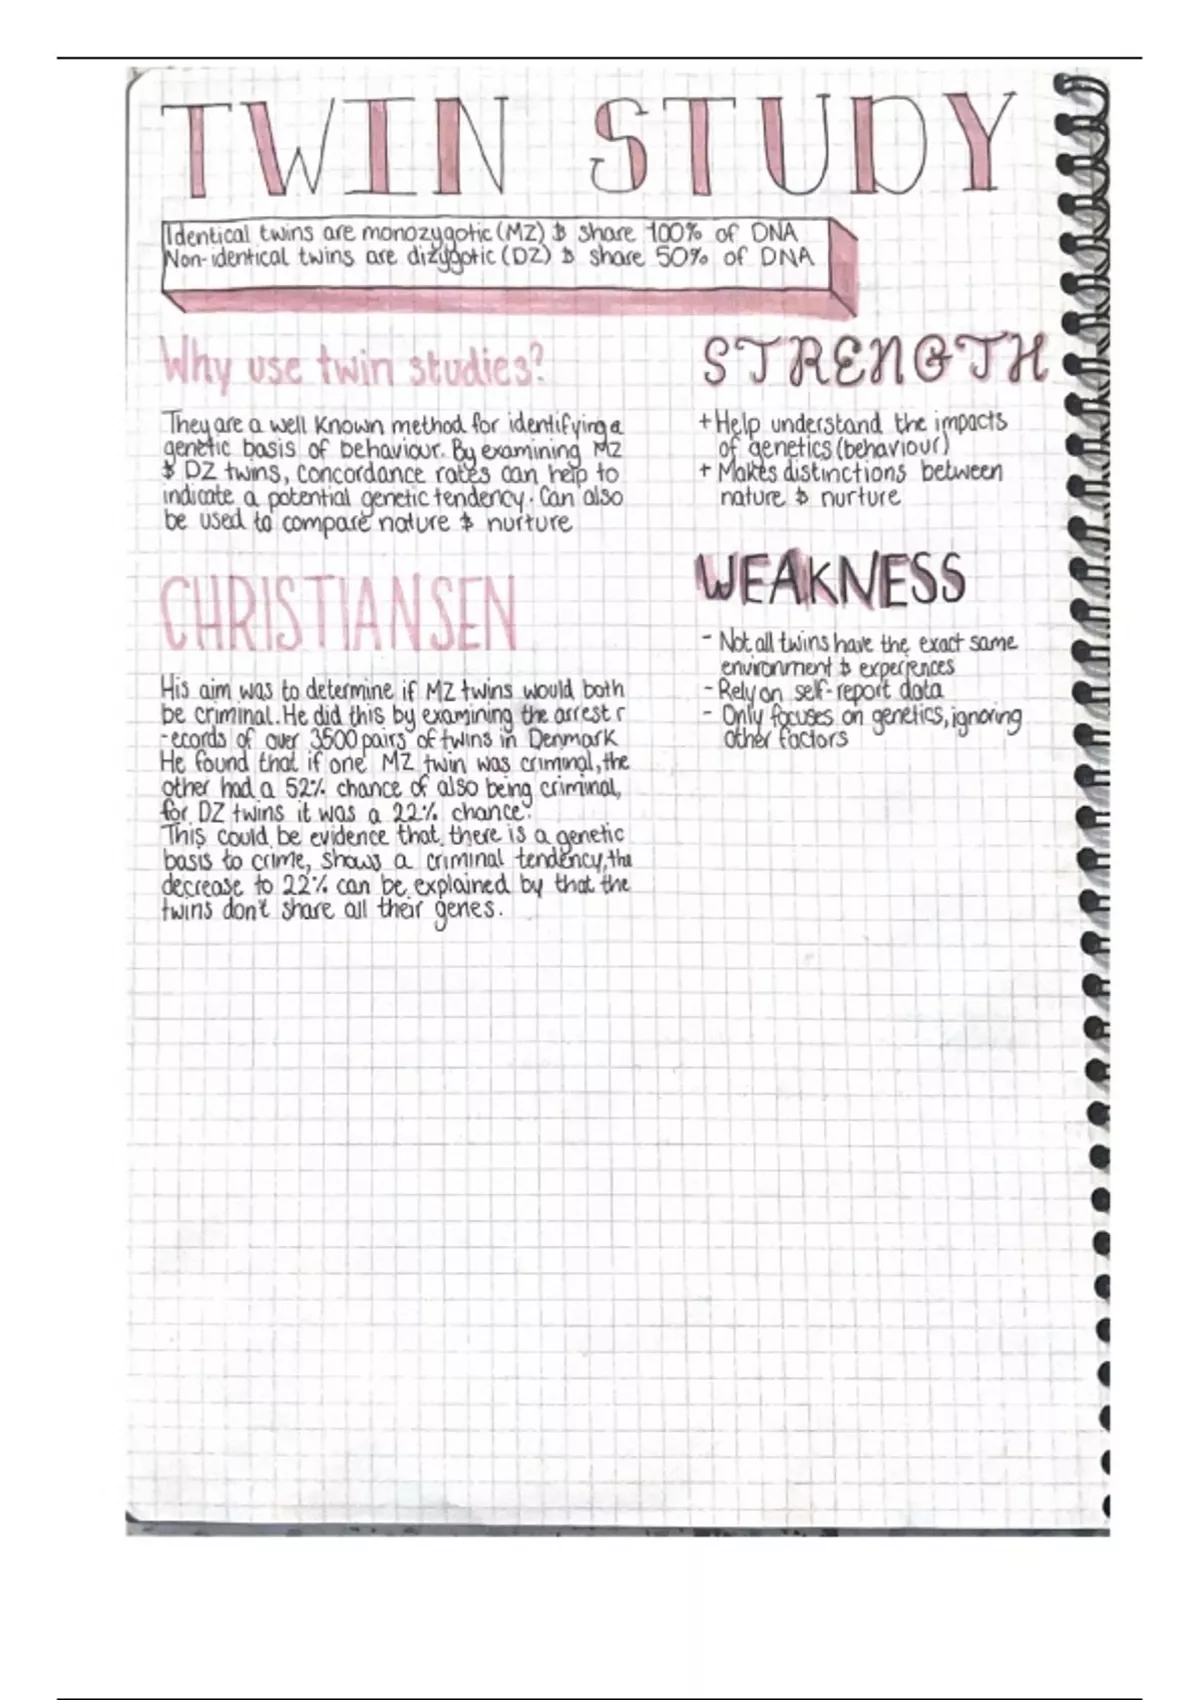 TWIN STUDY
Identical twins are monozygotic (MZ) & share 100% of DNA
Non-identical twins are dizygotic (DZ) & share 50% of DNA
Why use twin studies?
They are a well known method for identifying a
genetic basis of behaviour. By examining MZ
& DZ twins, concordance rates can help to
indicate a potential genetic tendency. Can also
be used to compare nature & nurture
CHRISTIANSEN
His aim was to determine if MZ twins would both
be criminal. He did this by examining the arrest r
-ecords of over 3500 pairs of twins in Denmark
He found that if one MZ twin was criminal, the
other had a 52% chance of also being criminal,
for DZ twins it was a 22% chance.
This could be evidence that there is a genetic
basis to crime, shows a criminal tendency, the
decrease to 22% can be explained by that the
twins don't share all their genes.
STRENGTH
+ Help understand the impacts
of genetics (behaviour)
+ Makes distinctions between
nature & nurture
WEAKNESS
- Not all twins have the exact same
environment & experiences
- Rely on self-report data
- Only focuses on genetics, ignoring
other factors